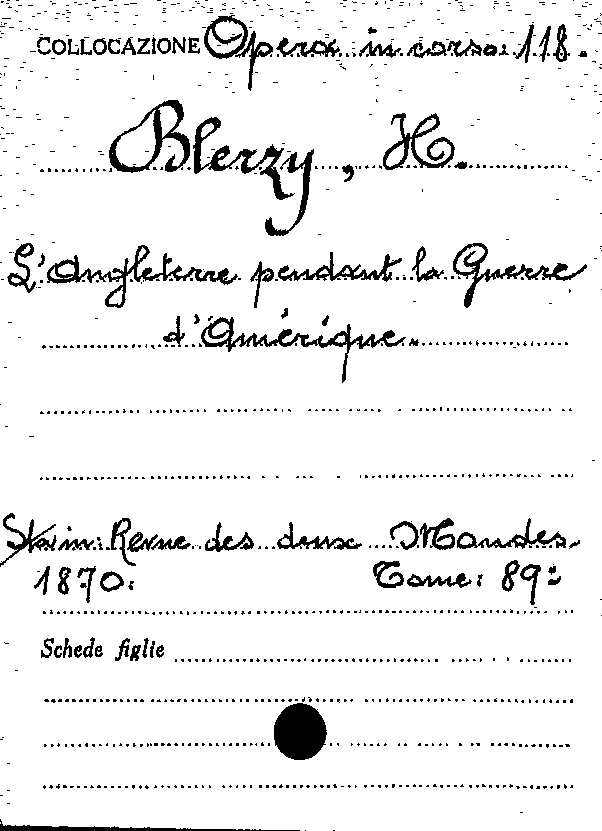 COLLOCAZIONE Opera in corso: 118.
Blerzy, H.
L'Angleterre pendant la Guerre
d'Amérique.
Sta in: Revue des deux Mondes.
1870. Tome: 89º
Schede figlie